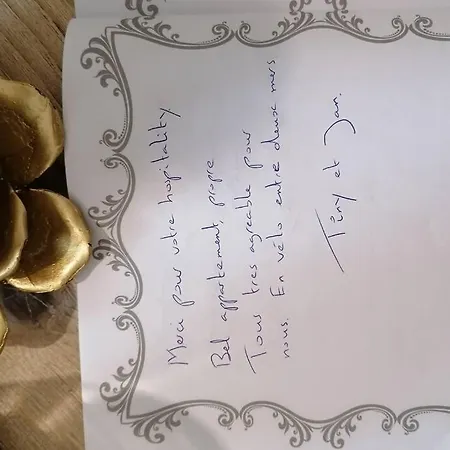 Merci pour votre hospitality.
Bel appartement, propre
Tous tres agreable pour
nous. En vélo entre deux mers
Tiny et Jan.